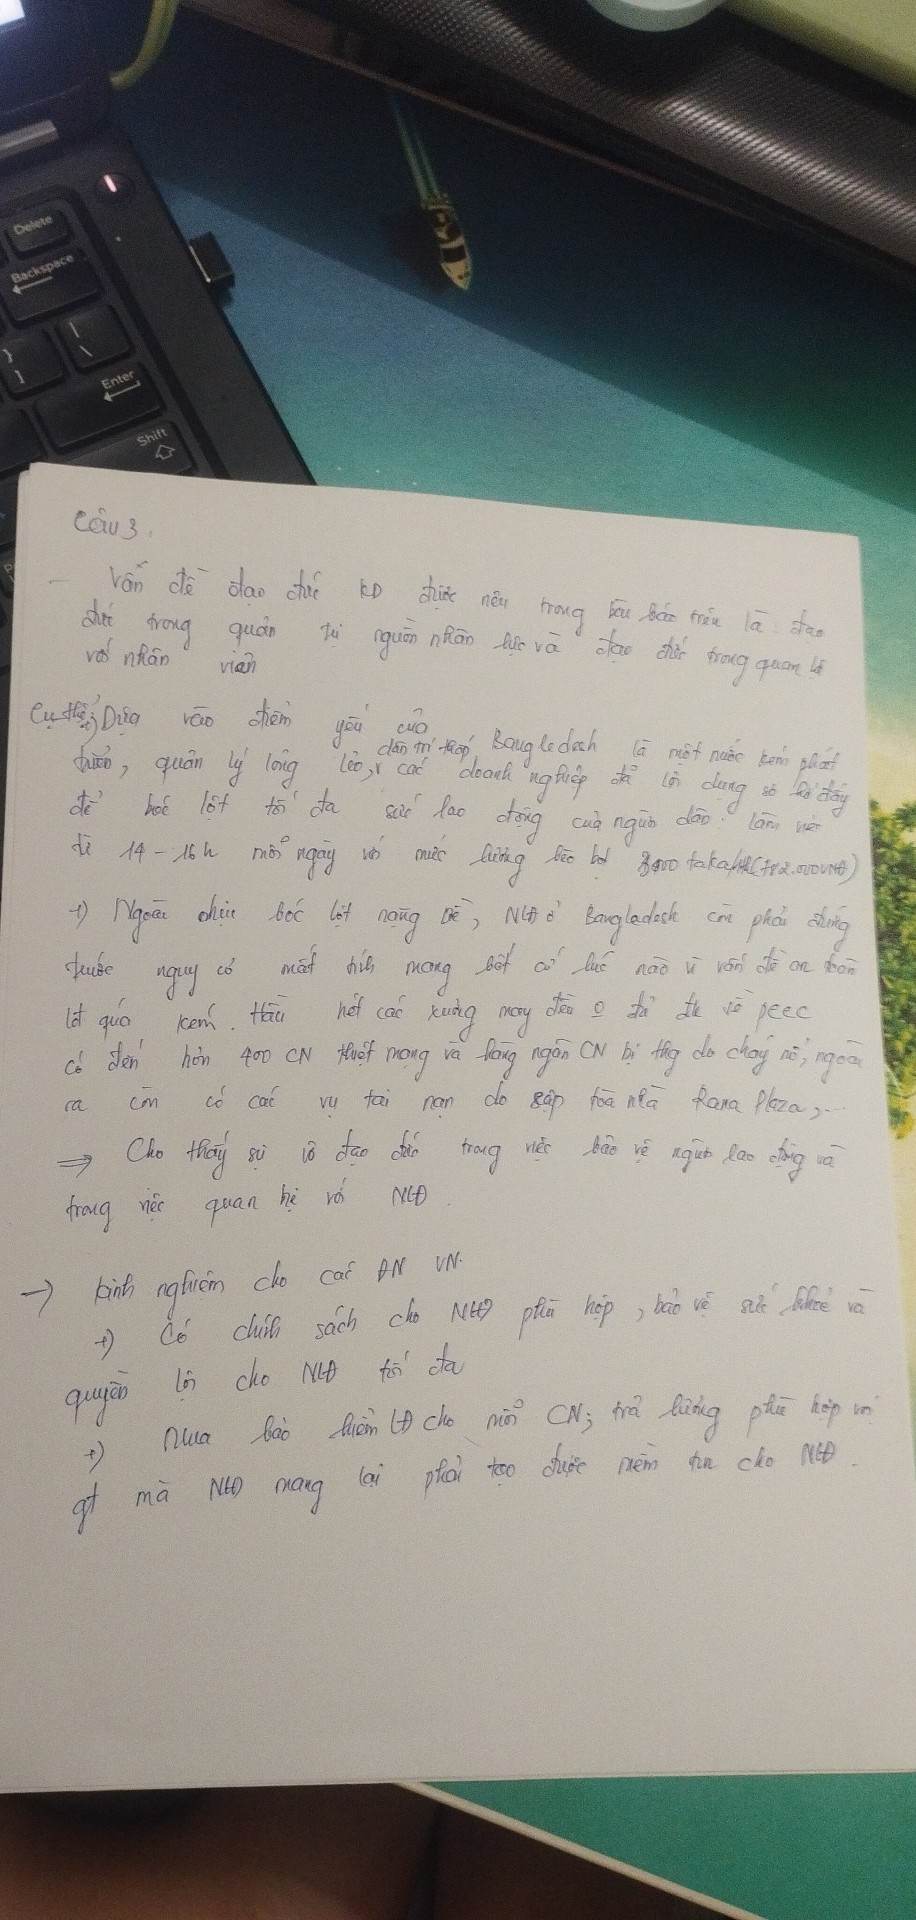 Delete
Backspace
Enter
Shift
Câu 3.
- Vấn đề đạo đức KD được nêu trong bài báo trên là: đạo
đức trong quản trị nguồn nhân lực và đạo đức trong quan hệ
với nhân viên
Cụ thể: Dựa vào điểm yếu của Bangledesh là một nước kém phát
triển, quản lý lỏng lẻo, dân trí thấp, các doanh nghiệp đã lợi dụng sơ hở đấy
để bóc lột tối đa sức lao động của người dân. làm việc
từ 14 - 16h mỗi ngày với mức lương bèo bọt 3000 taka
+) Ngoài chịu bóc lột nặng nề, NLĐ ở Bangladesh còn phải đứng
trước nguy cơ mất tính mạng bất cứ lúc nào vì vấn đề an toàn
lđ quá kém. Hầu hết các xưởng may đều o đủ đk về pccc
có đến hơn 400 CN thiệt mạng và hàng ngàn CN bị thg do cháy nổ, ngoài
ra còn có các vụ tai nạn do sập tòa nhà Rana Plaza,...
=> Cho thấy sự vô đạo đức trong việc bảo vệ người lao động và
trong việc quan hệ với NLĐ.
-> Kinh nghiệm cho các DN VN.
+) Có chính sách cho NLĐ phù hợp, bảo vệ sức khoẻ và
quyền lợi cho NLĐ tối đa
+) Mua bảo hiểm LĐ cho mỗi CN; trả lương phù hợp với
gt mà NLĐ mang lại phải tạo được niềm tin cho NLĐ.